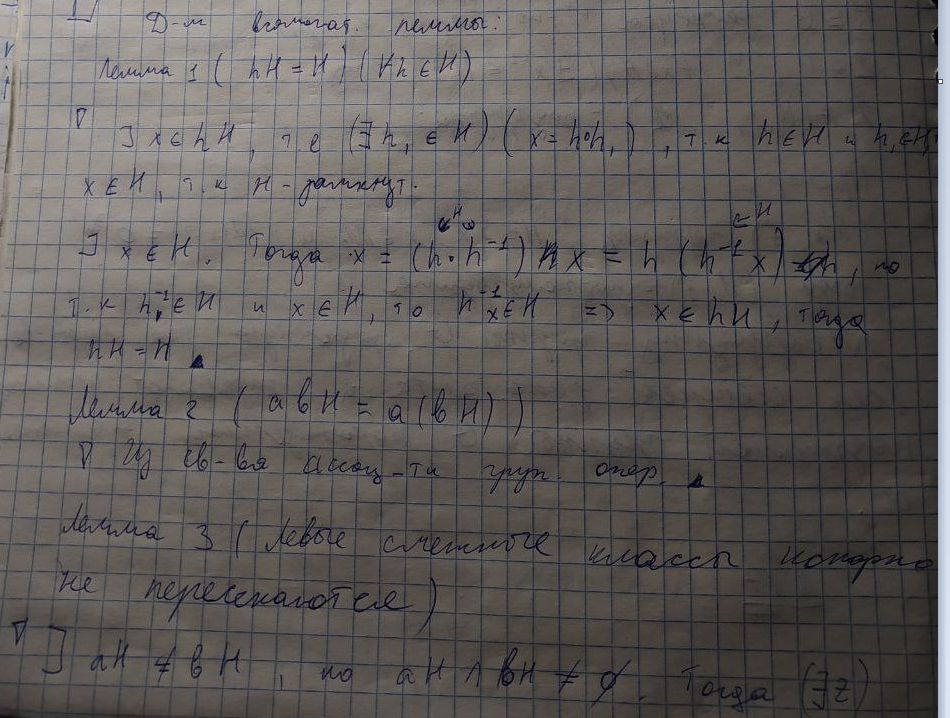 Д-м вспомогат. леммы:
Лемма 1 ( hH = H ) (∀h ∈ H)
∇ ] x ∈ hH, т.е (∃h₁ ∈ H) ( x = h∘h₁ ), т.к h ∈ H и h₁ ∈ H,
x ∈ H, т.к H - замкнут.
] x ∈ H. Тогда x = (h · h⁻¹) x = h (h⁻¹ x) , но
т.к h⁻¹ ∈ H и x ∈ H, то h⁻¹x ∈ H => x ∈ hH, тогда
hH = H ▲
Лемма 2 ( a b H = a (b H) )
∇ Из св-ва ассоц-ти груп. опер. ▲
Лемма 3 ( левые смежные классы попарно
не пересекаются )
∇ ] aH ≠ bH , но aH ∩ bH ≠ ∅. Тогда (∃z)